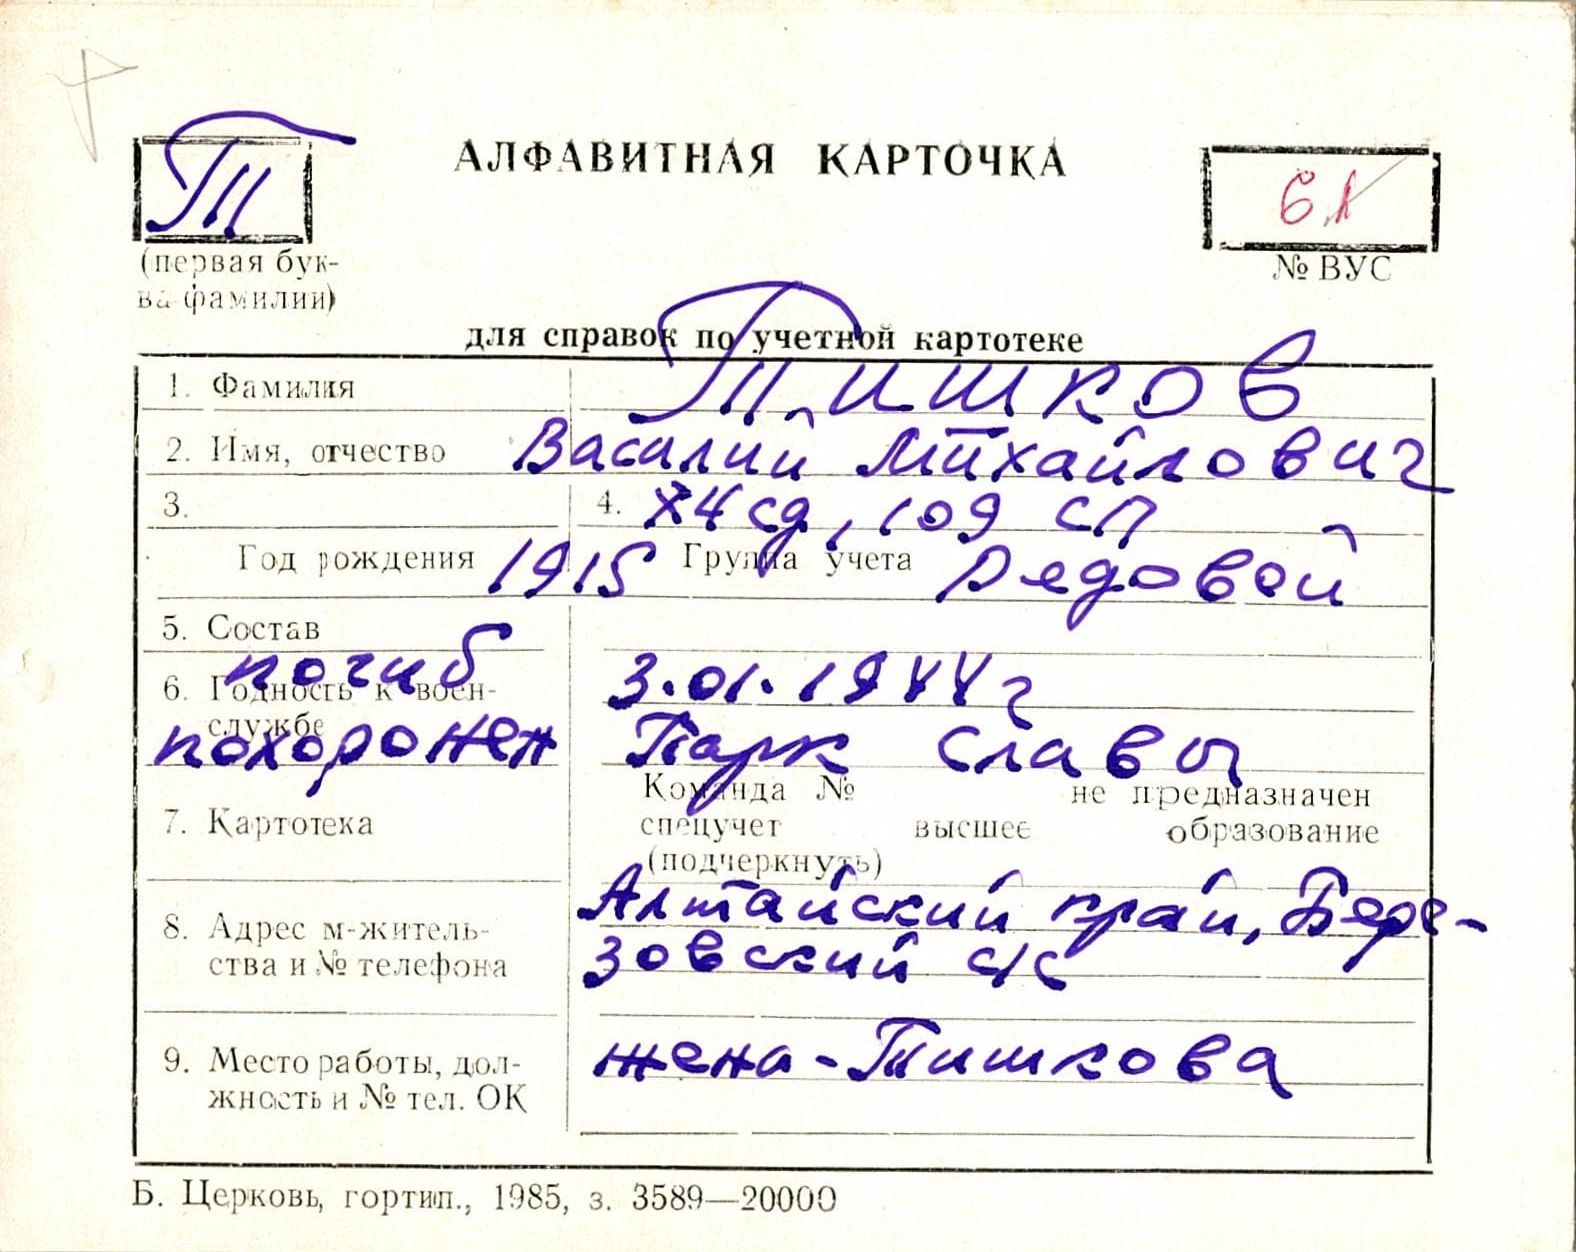 Т
АЛФАВИТНАЯ КАРТОЧКА
61
(первая бук-
ва фамилии)
№ ВУС
для справок по учетной картотеке
1. Фамилия Тишков
2. Имя, отчество Василий Михайлович
3. 4. 74 сд, 109 сп
Год рождения 1915 Группа учета Рядовой
5. Состав
погиб 3.01.1944 г
6. Годность к воен-
службе
похоронен Парк Славы
Команда № не предназначен
7. Картотека спецучет высшее образование
(подчеркнуть)
Алтайский край, Бере-
8. Адрес м-житель-
ства и № телефона зовский с/с
9. Место работы, дол- жена - Тишкова
жность и № тел. ОК
Б. Церковь, гортип., 1985, з. 3589—20000